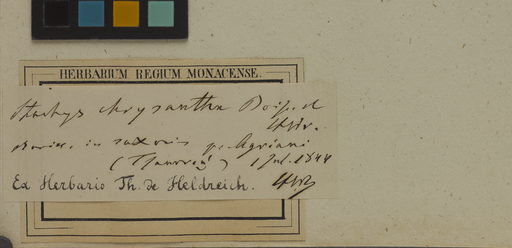 HERBARIUM REGIUM MONACENSE.
Stachys chrysantha Boiss. et
Hldr.
in saxosis pr. Agriani
1 Jul. 1844
Ex Herbario Th. de Heldreich.